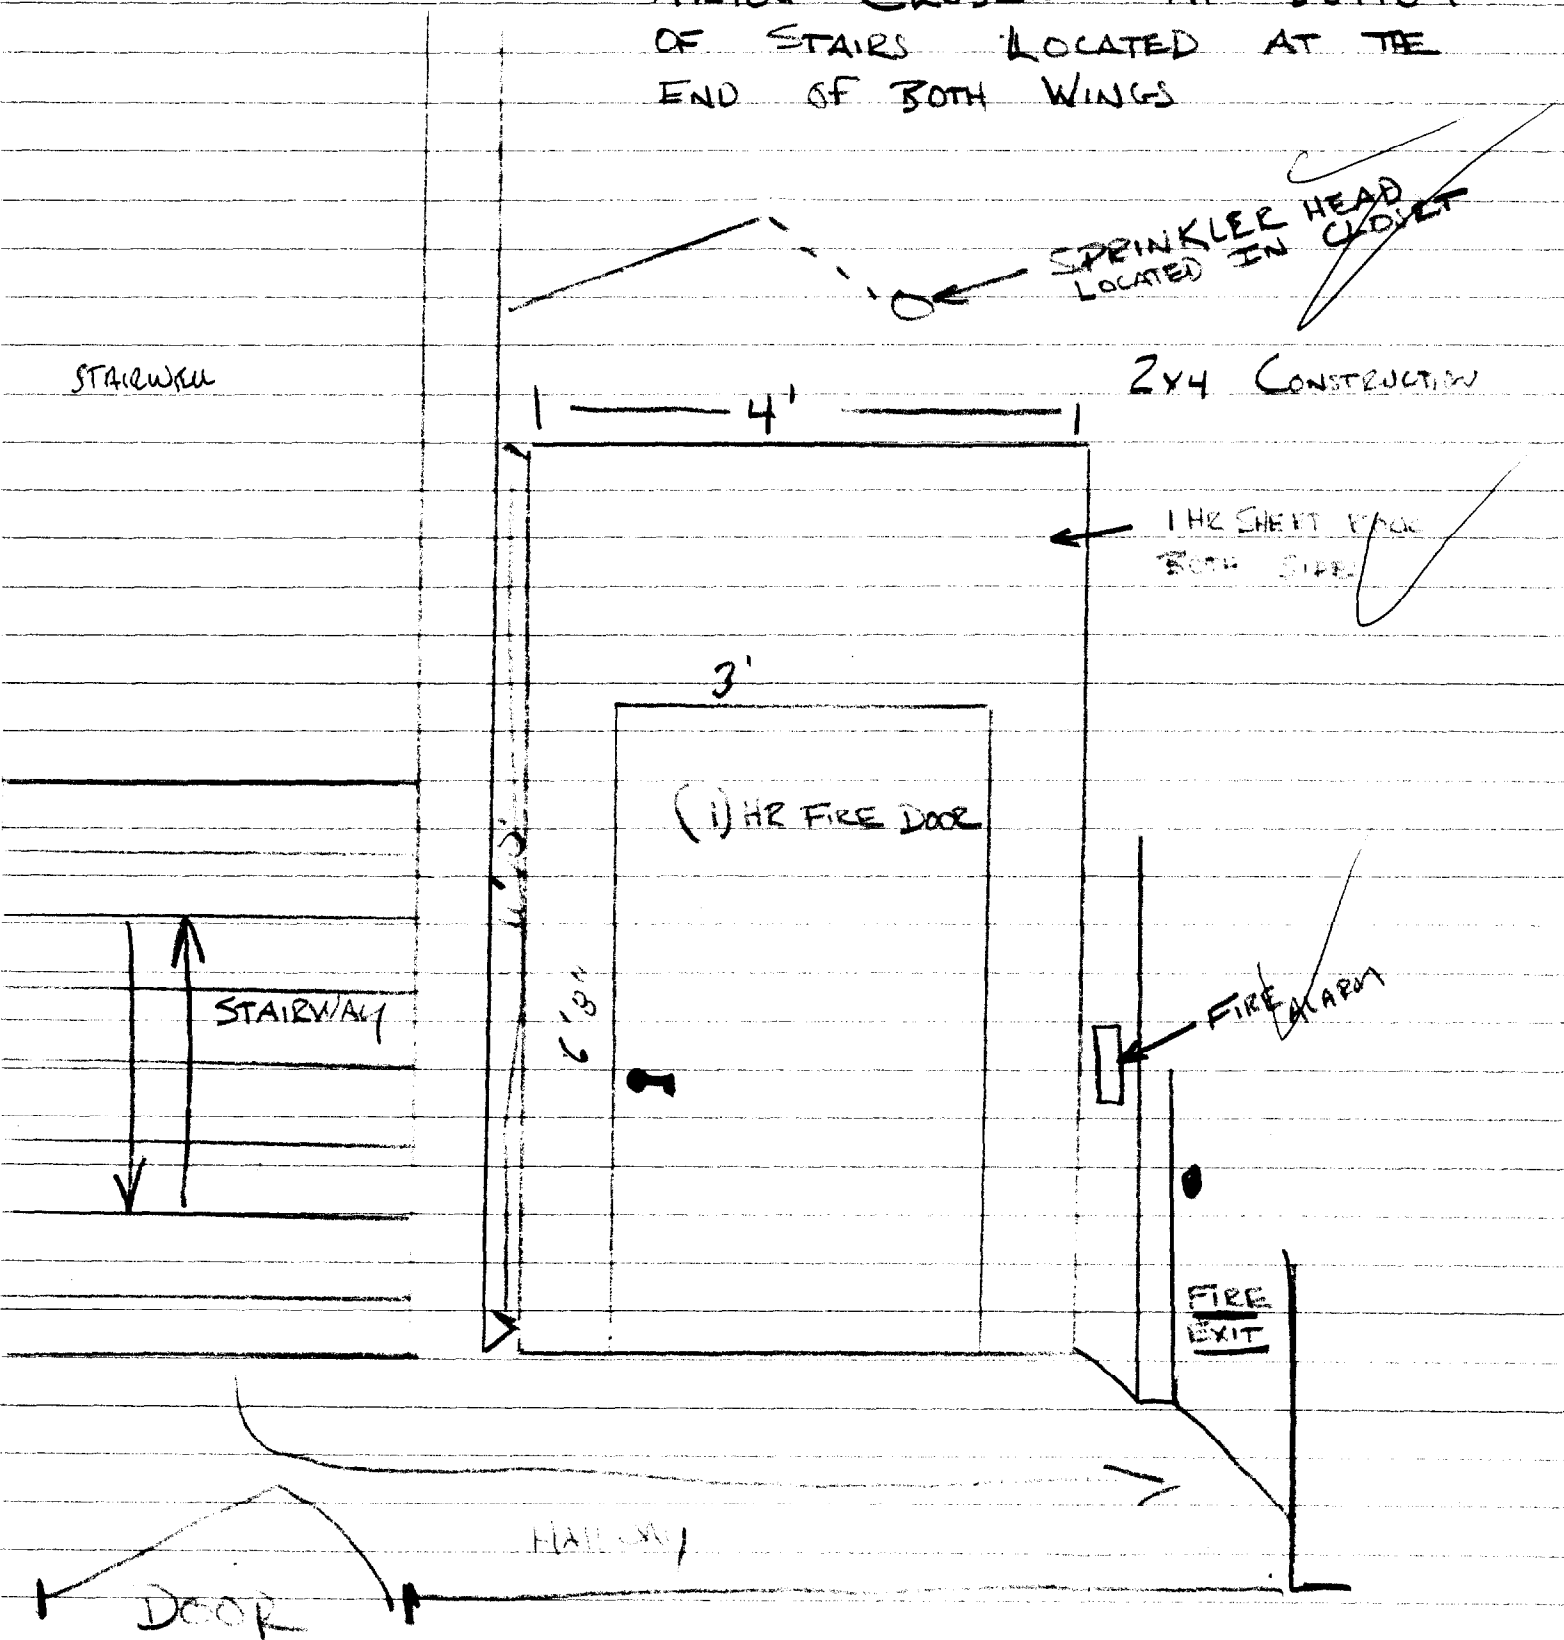 OF STAIRS LOCATED AT THE
END OF BOTH WINGS
SPRINKLER HEAD
LOCATED IN CLOSET
STAIRWELL
2x4 CONSTRUCTION
4'
1 HR SHEET ROCK
BOTH SIDES
3'
(1) HR FIRE DOOR
6'8"
STAIRWAY
FIRE ALARM
FIRE
EXIT
HALLWAY
DOOR